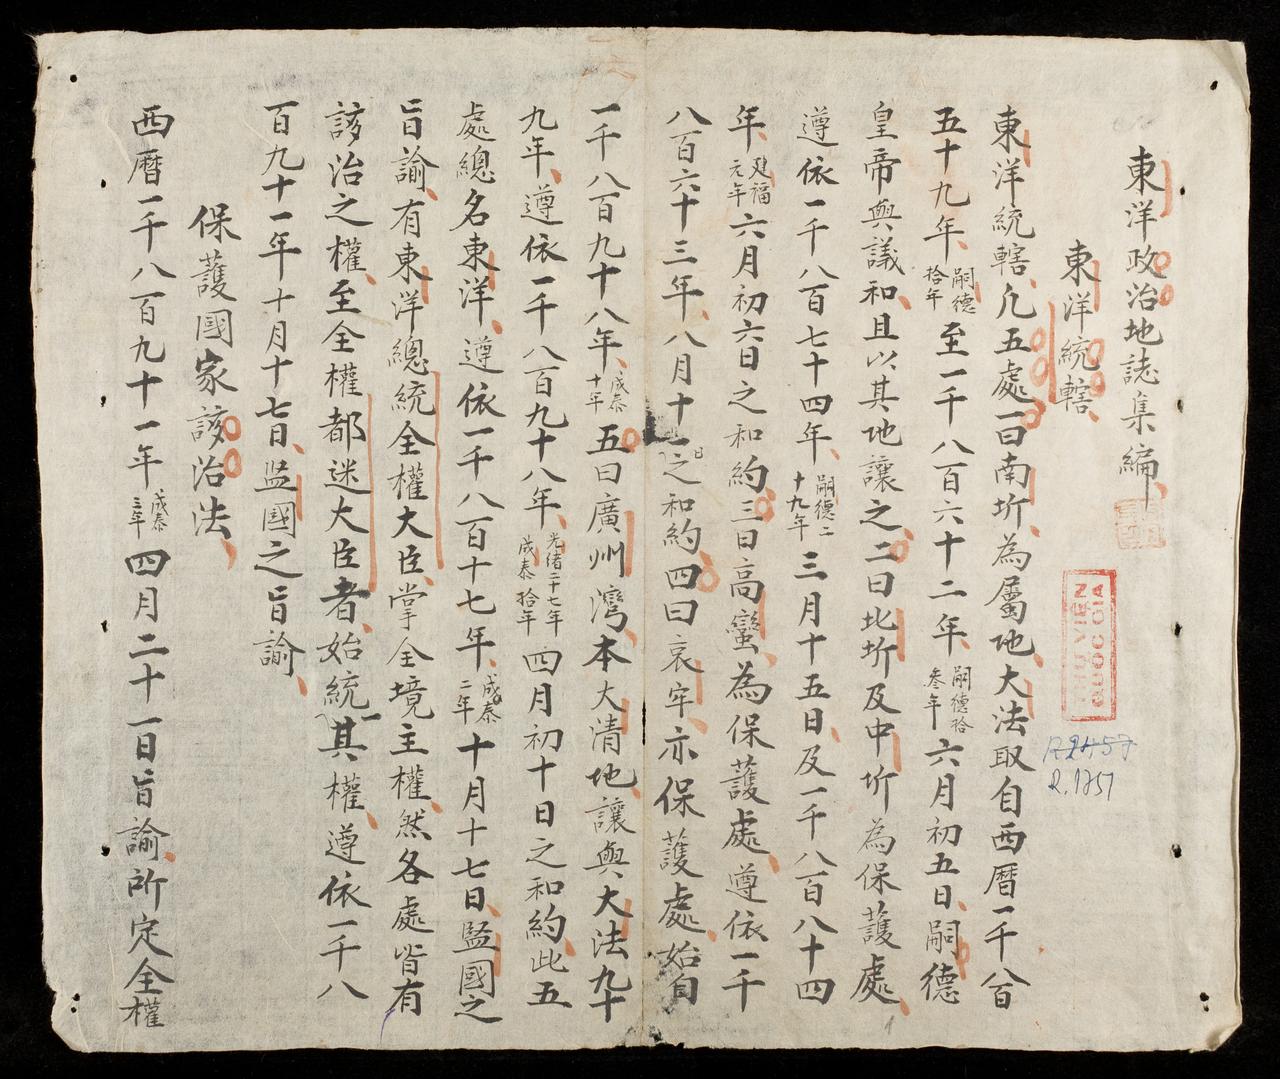 東洋政治地誌集編
東洋統轄
東洋統轄凢五處一曰南圻為屬地大法取自西暦一千八百
五十九年嗣德拾年至一千八百六十二年嗣德拾叁年六月初五日嗣德
皇帝與議和且以其地讓之二曰北圻及中圻為保護處
遵依一千八百七十四年嗣德二十九年三月十五日及一千八百八十四
年建福元年六月初六日之和約三曰高蠻為保護處遵依一千
八百六十三年八月十一日之和約四曰哀牢亦保護處始自
一千八百九十八年成泰十年五曰廣州灣本大清地讓與大法九十
九年遵依一千八百九十八年光緒二十七年成泰拾年四月初十日之和約此五
處總名東洋遵依一千八百十七年成泰二年十月十七日監國之
旨諭有東洋總統全權大臣掌全境主權然各處皆有
該治之權至全權都迷大臣者始統其權遵依一千八
百九十一年十月十七日監國之旨諭
保護國家該治法
西暦一千八百九十一年成泰三年四月二十一日旨諭所定全權
THƯ VIỆN
QUỐC GIA
R.1751